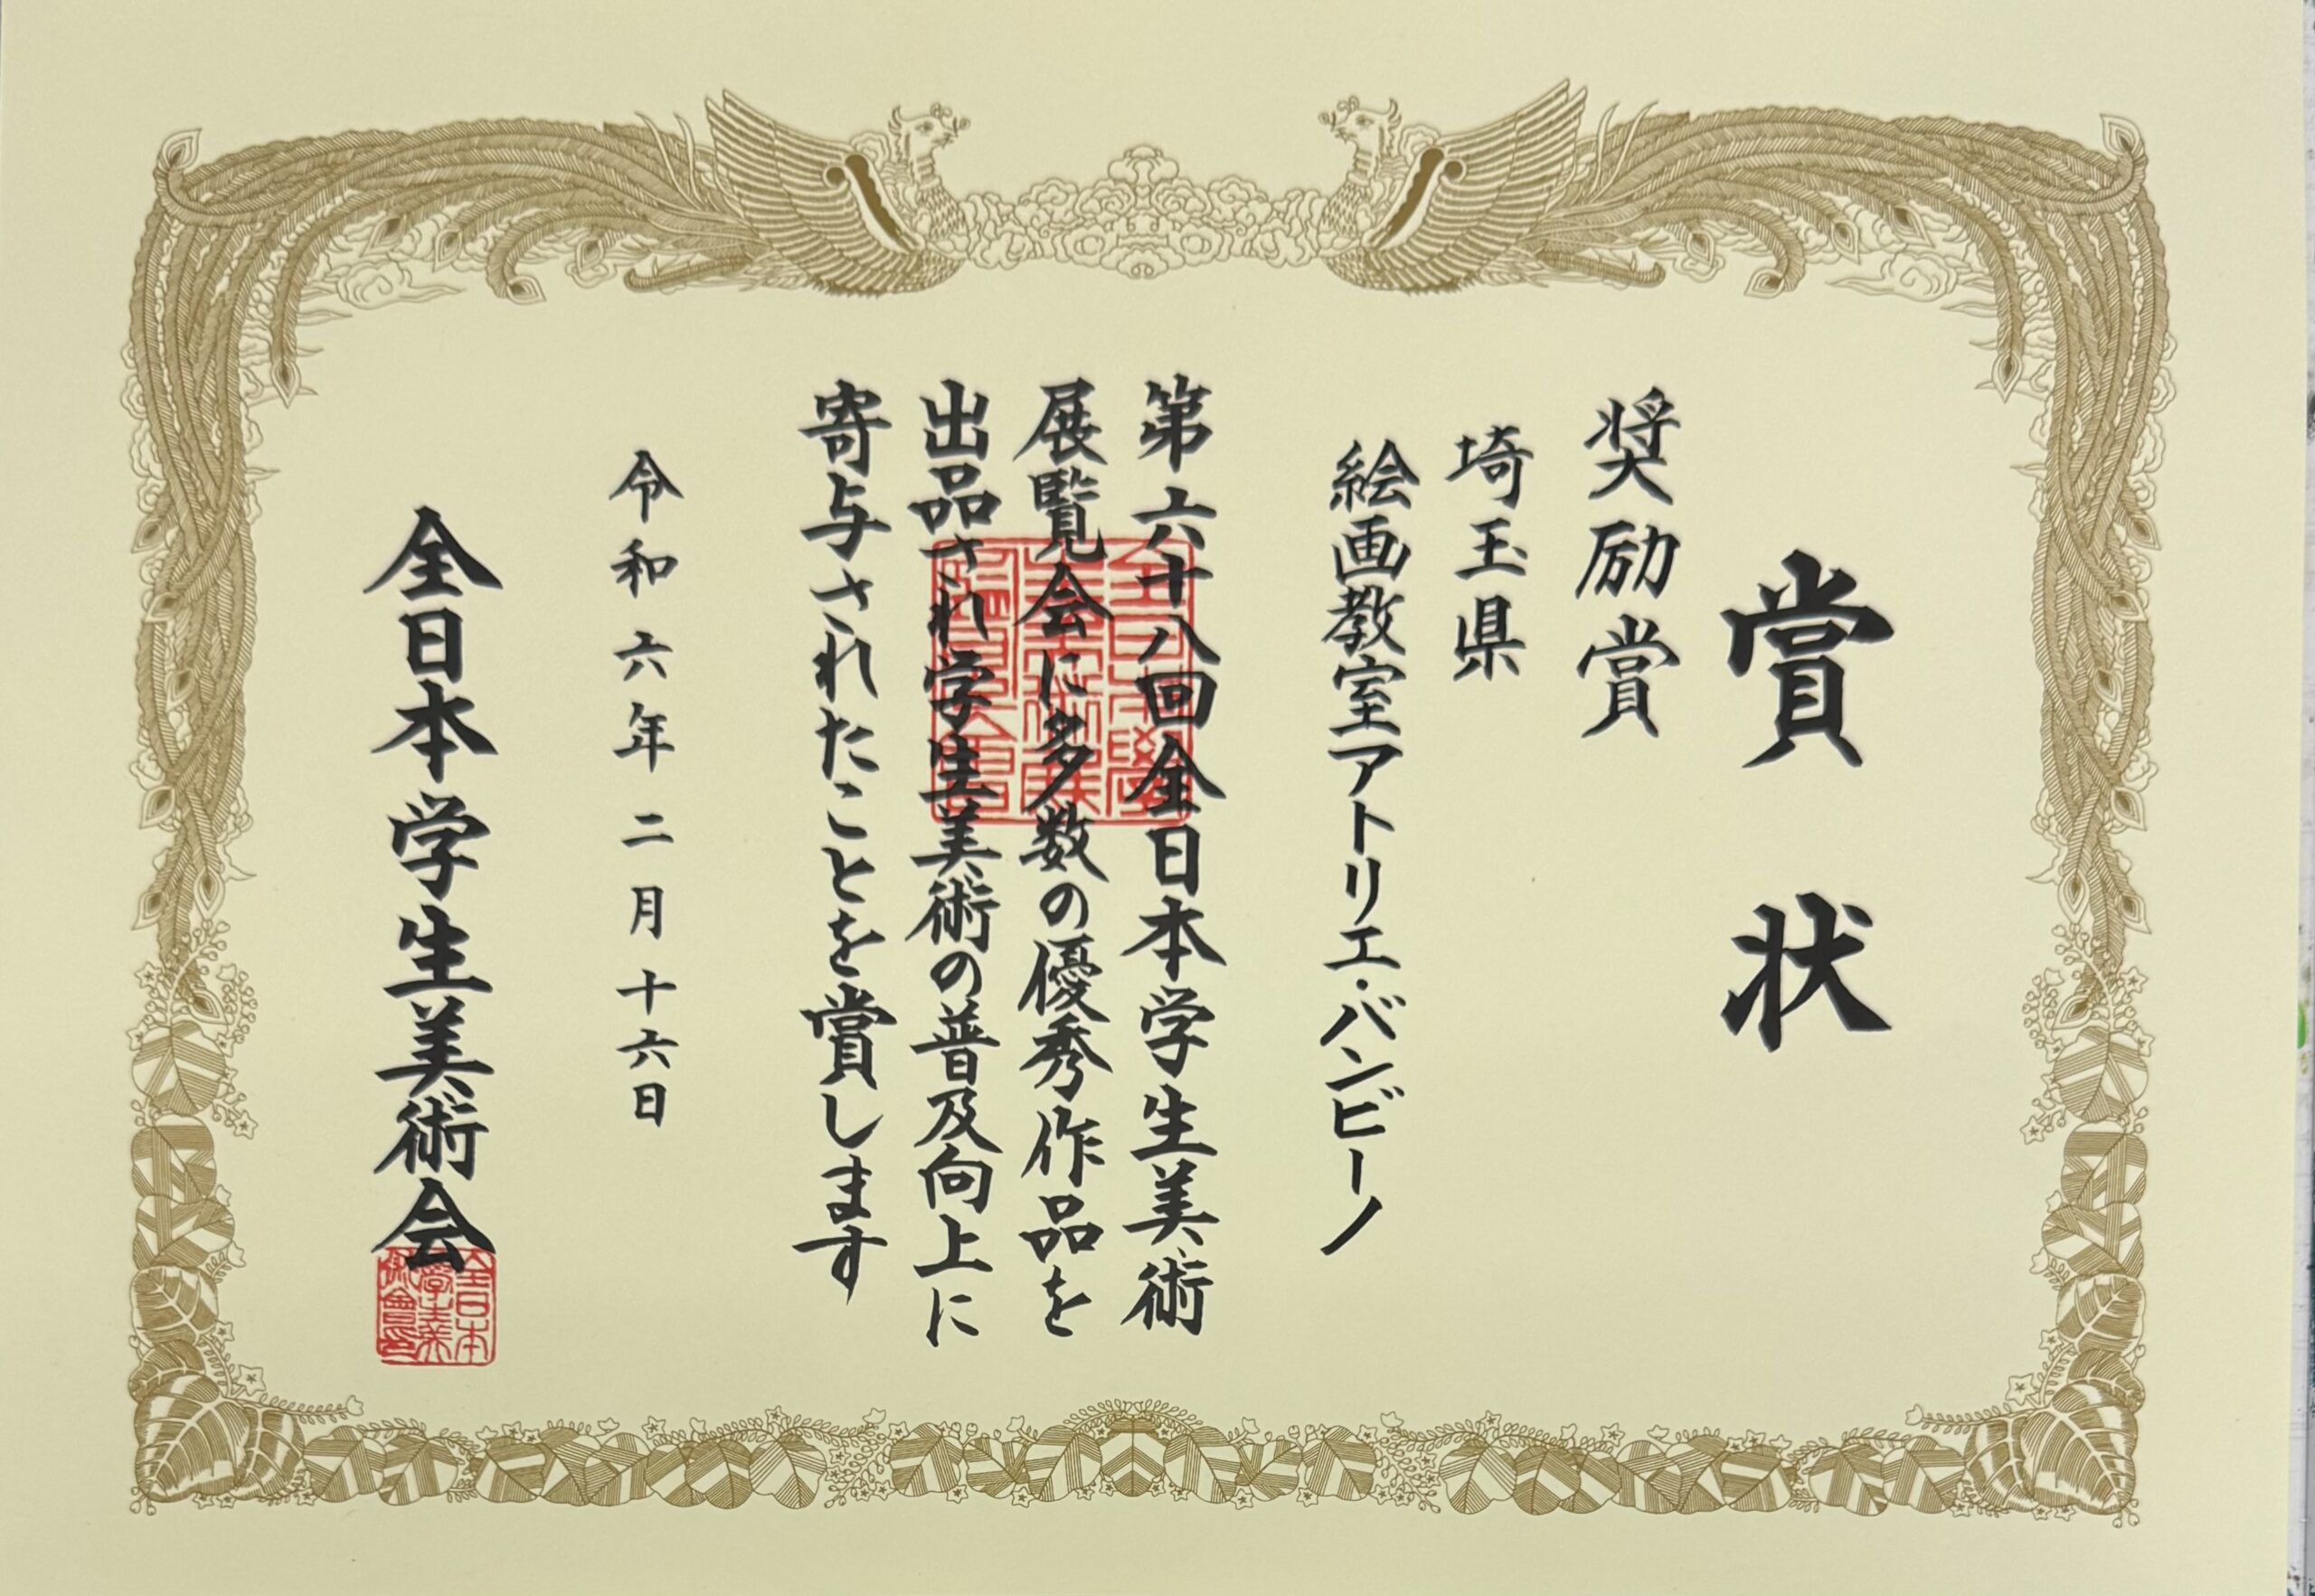 賞状
奨励賞
埼玉県
絵画教室アトリエ・バンビーノ
第六十八回全日本学生美術
展覧会に多数の優秀作品を
出品され学生美術の普及向上に
寄与されたことを賞します
令和六年二月十六日
全日本学生美術会